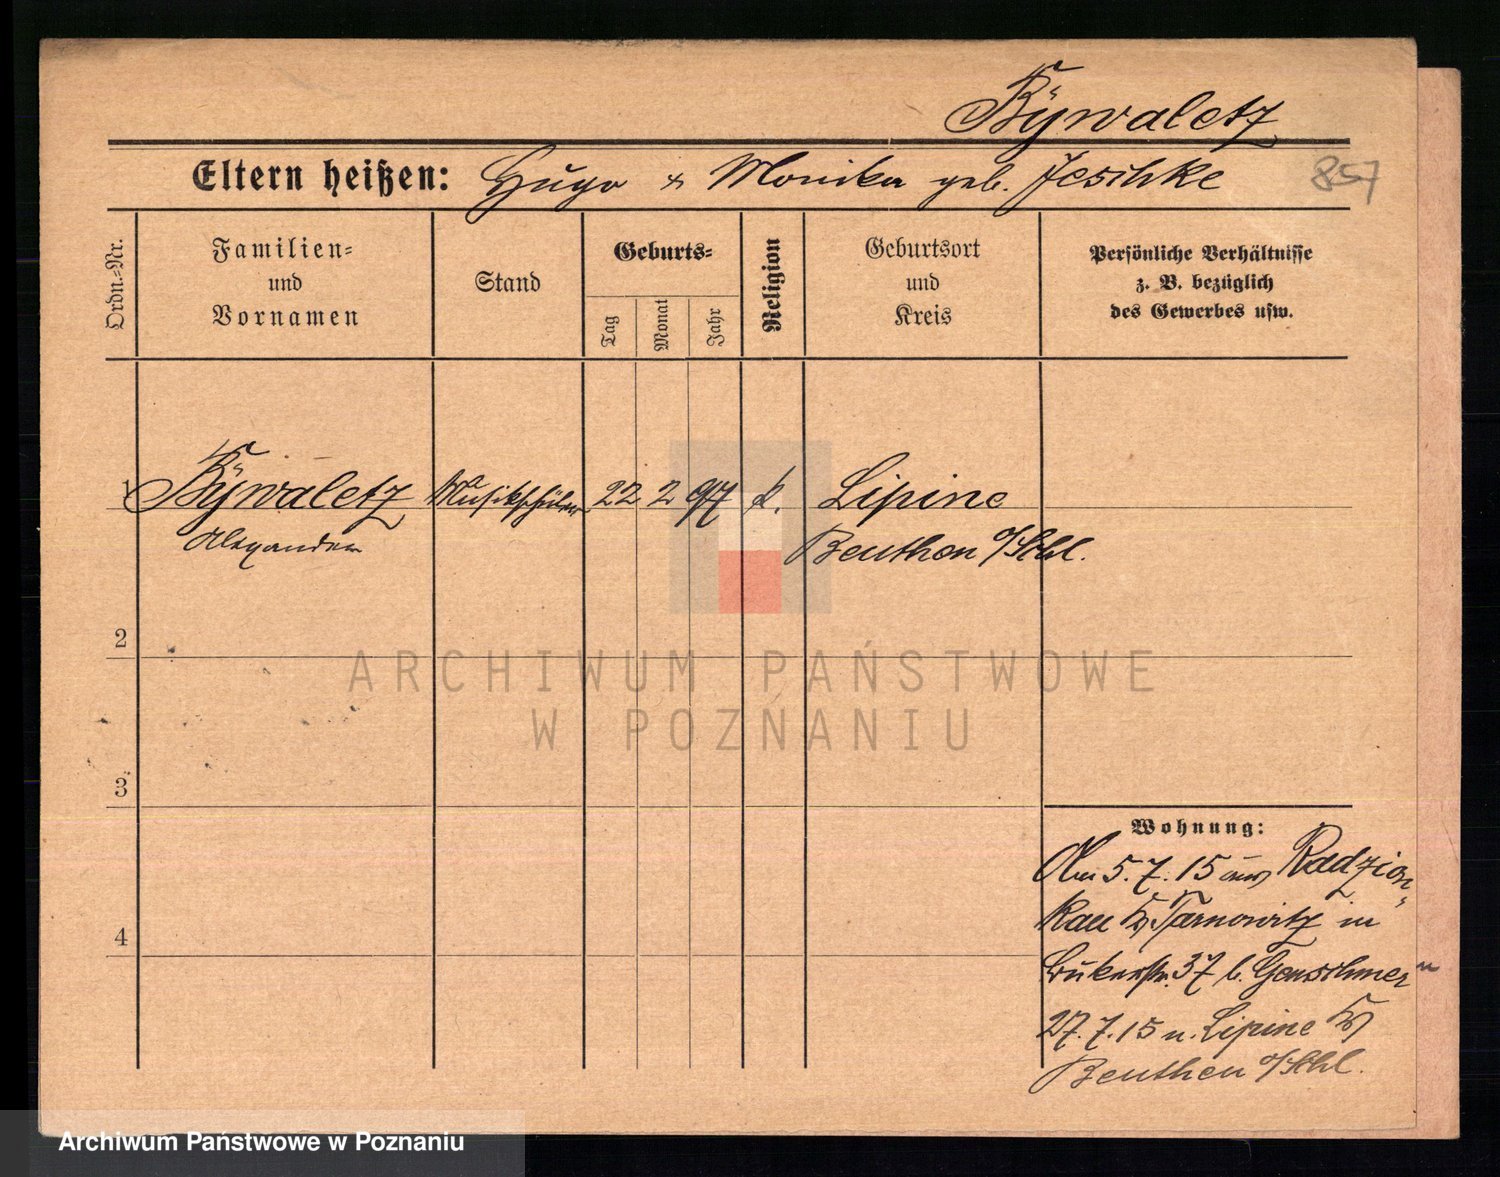 Bÿwaletz
Eltern heißen: Hugo & Monika geb. Jeschke
857
Ordn.-Nr.
Familien- und Vornamen
Stand
Geburts-
Tag
Monat
Jahr
Religion
Geburtsort und Kreis
Persönliche Verhältnisse z. B. bezüglich des Gewerbes usw.
1 Bÿwaletz Musikschüler 22 2 97 k. Lipine
Alexander Beuthen o/Schl.
2
ARCHIWUM PAŃSTWOWE
W POZNANIU
3
Wohnung:
Am 5.7.15 aus Radzion-
kau Kr Tarnowitz in
37 b.
4
27.7.15 n. Lipine Kr
Beuthen o/Schl.
Archiwum Państwowe w Poznaniu